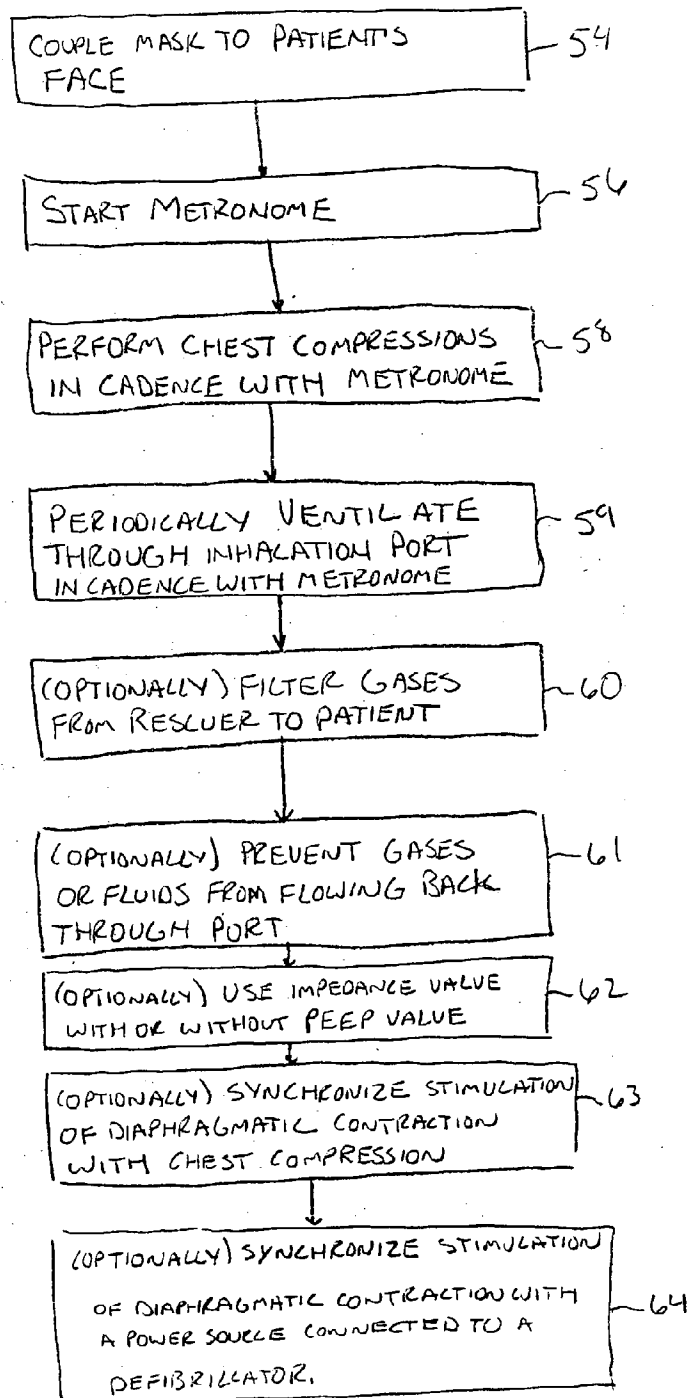 COUPLE MASK TO PATIENT'S
FACE
54
START METRONOME
56
PERFORM CHEST COMPRESSIONS
IN CADENCE WITH METRONOME
58
PERIODICALLY VENTILATE
THROUGH INHALATION PORT
IN CADENCE WITH METRONOME
59
(OPTIONALLY) FILTER GASES
FROM RESCUER TO PATIENT
60
(OPTIONALLY) PREVENT GASES
OR FLUIDS FROM FLOWING BACK
THROUGH PORT
61
(OPTIONALLY) USE IMPEDANCE VALVE
WITH OR WITHOUT PEEP VALVE
62
(OPTIONALLY) SYNCHRONIZE STIMULATION
OF DIAPHRAGMATIC CONTRACTION
WITH CHEST COMPRESSION
63
(OPTIONALLY) SYNCHRONIZE STIMULATION
OF DIAPHRAGMATIC CONTRACTION WITH
A POWER SOURCE CONNECTED TO A
DEFIBRILLATOR.
64